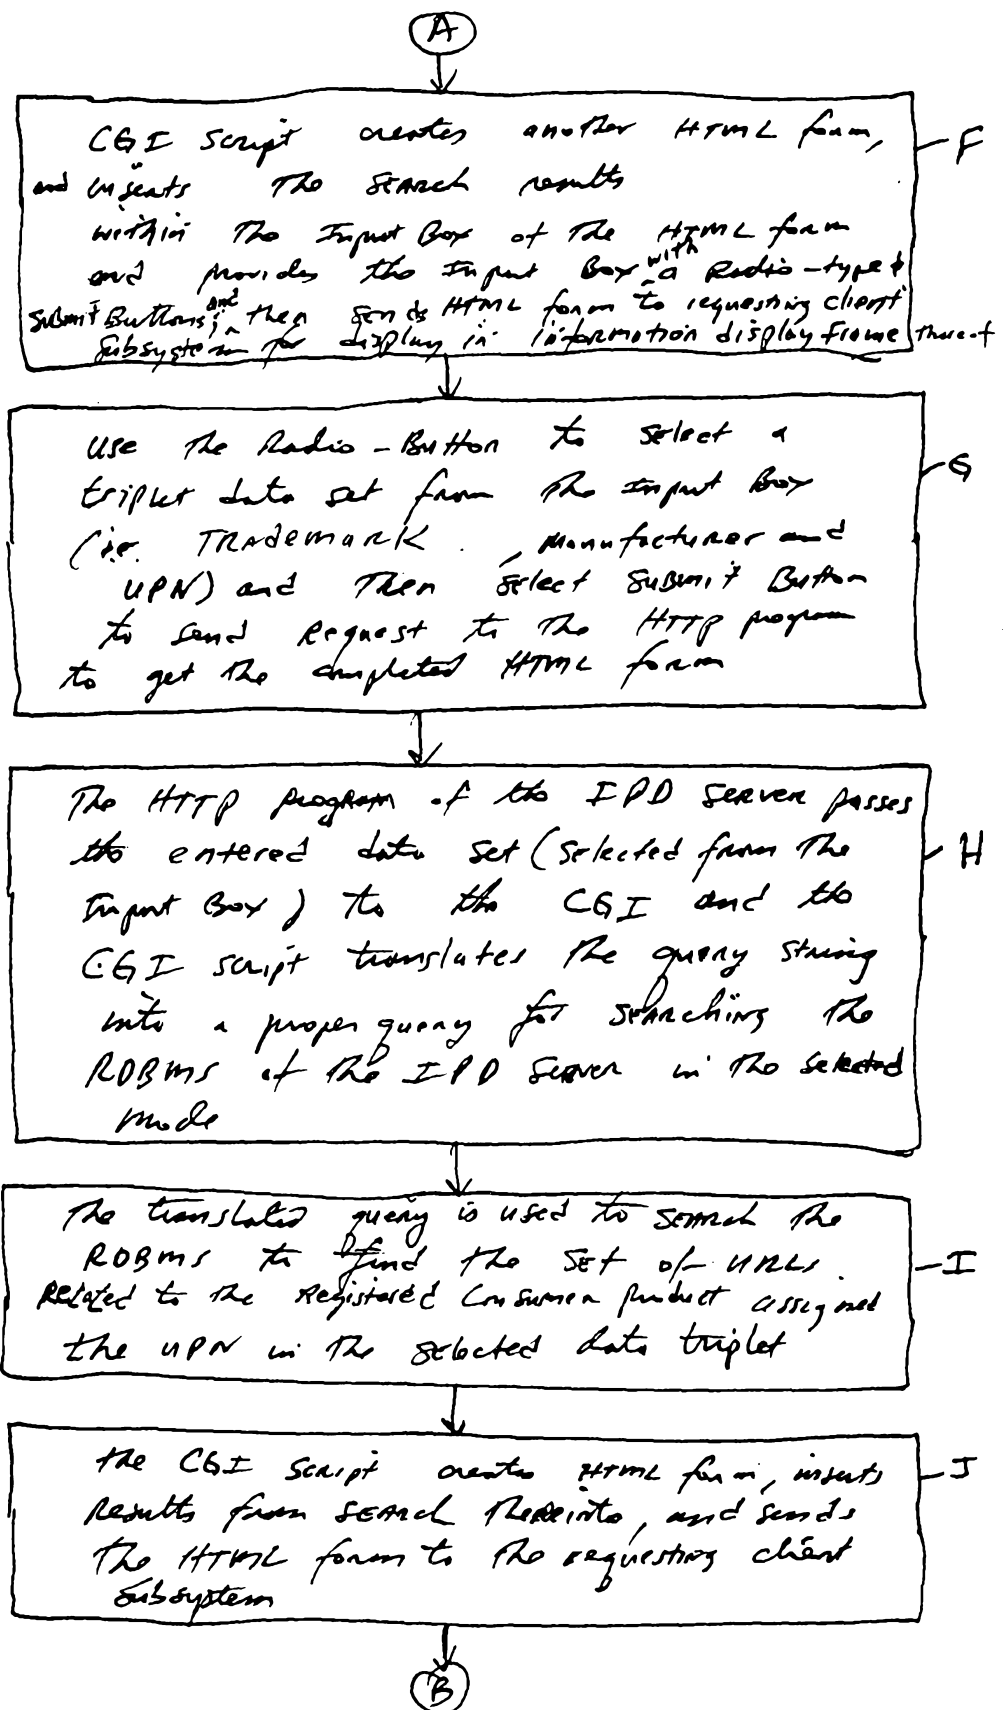 A
CGI Script creates another HTML form, F
and inserts the SEARCH results
within the Input Box of the HTML form
and provides the Input Box with a Radio-type &
Submit Buttons; and then sends HTML form to requesting client
subsystem for display in information display frame thereof
use the Radio-Button to select a
triplet data set from the Input Box G
(ie. TRADEMARK, manufacturer and
UPN) and Then select SUBMIT Button
to send Request to the HTTP program
to get the completed HTML form
The HTTP program of the IPD SERVER passes
the entered data set (selected from The H
Input Box) to the CGI and the
CGI script translates the query string
into a proper query for SEARCHING the
RDBMS of the IPD Server in the selected
mode
The translated query is used to SEARCH the
RDBMS to find the SET of URLs I
RELATED to the Registered Consumer product assigned
the UPN in the selected data triplet
the CGI Script creates HTML form, inserts J
Results from SEARCH thereinto, and sends
the HTML form to the requesting client
subsystem
B